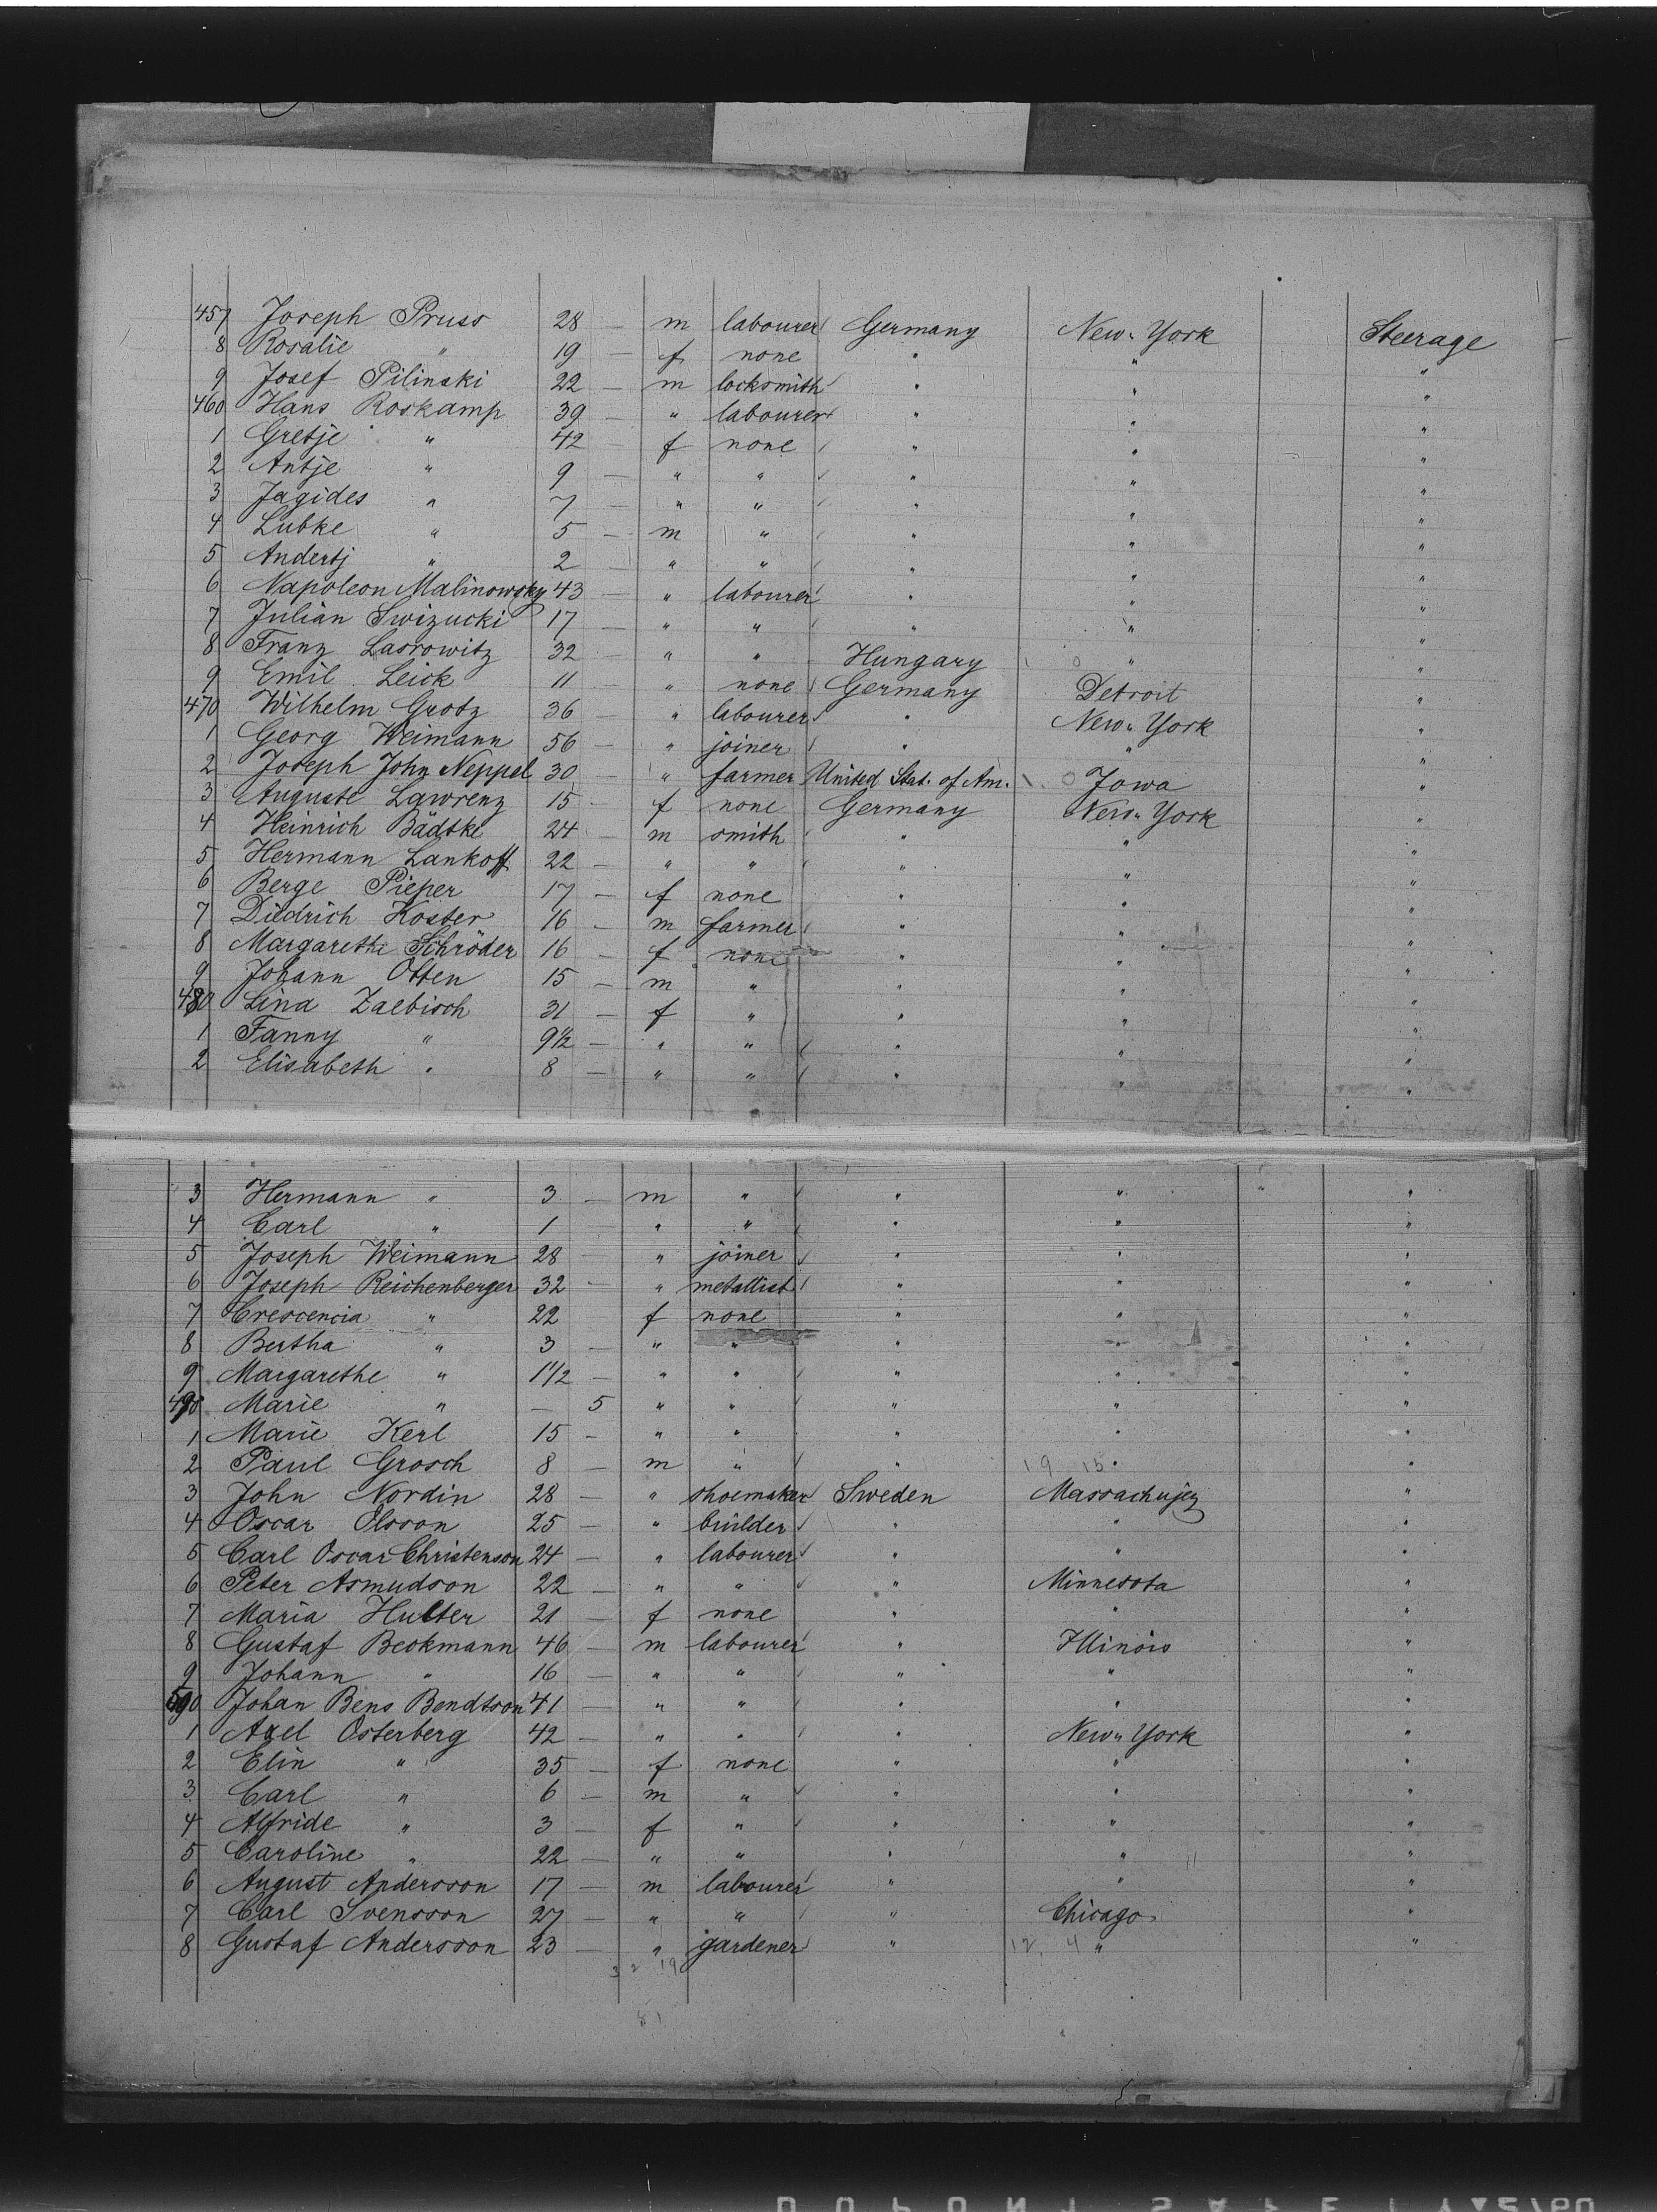 457 Joseph Pruss 28 — m labourer Germany New-York Steerage
8 Rosalie " 19 — f none " " "
9 Josef Pilinski 22 — m locksmith " " "
460 Hans Roskamp 39 — " labourer " " "
1 Gretje " 42 — f none " " "
2 Antje " 9 — " " " " "
3 Jagides " 7 — " " " " "
4 Lübke " 5 — m " " " "
5 Andertj " 2 — " " " " "
6 Napoleon Malinowsky 43 — " labourer " " "
7 Julian Swizucki 17 — " " " " "
8 Franz Lasrowitz 32 — " " Hungary " "
9 Emil Leick 11 — " none Germany Detroit "
470 Wilhelm Grotz 36 — " labourer " New-York "
1 Georg Weimann 56 — " joiner " " "
2 Joseph John Neppel 30 — " farmer United Stat. of Am. Jowa "
3 Auguste Lawrenz 15 — f none Germany New-York "
4 Heinrich Bädtke 24 — m smith " " "
5 Hermann Lankoff 22 — " " " " "
6 Berge Pieper 17 — f none " " "
7 Diedrich Köster 16 — m farmer " " "
8 Margarethe Schröder 16 — f none " " "
9 Johann Otten 15 — m " " " "
480 Lina Zaebisch 31 — f " " " "
1 Fanny " 9½ — " " " " "
2 Elisabeth " 8 — " " " " "
3 Hermann " 3 — m " " " "
4 Carl " 1 — " " " " "
5 Joseph Weimann 28 — " joiner " " "
6 Joseph Reichenberger 32 — " metallist " " "
7 Crescencia " 22 f none " " "
8 Bertha " 3 — " " " " "
9 Margarethe " 1½ — " " " " "
490 Marie " — 5 " " " " "
1 Marie Kerl 15 — " " " " "
2 Paul Grosch 8 — m " " " "
3 John Nordin 28 — " shoemaker Sweden Massachujez "
4 Oscar Olsson 25 — " builder " " "
5 Carl Oscar Christenson 24 — " labourer " " "
6 Peter Asmudson 22 — " " " Minnesota "
7 Maria Hulter 21 — f none " " "
8 Gustaf Beckmann 46 — m labourer " Illinois "
9 Johann " 16 — " " " " "
500 Johan Bens Bendtson 41 — " " " " "
1 Axel Osterberg 42 — " " " New-York "
2 Elin " 35 — f none " " "
3 Carl " 6 — m " " " "
4 Alfride " 3 — f " " " "
5 Caroline " 22 — " " " " "
6 August Andersson 17 — m labourer " " "
7 Carl Svensson 27 — " " " Chicago "
8 Gustaf Andersson 23 — " gardener " " "